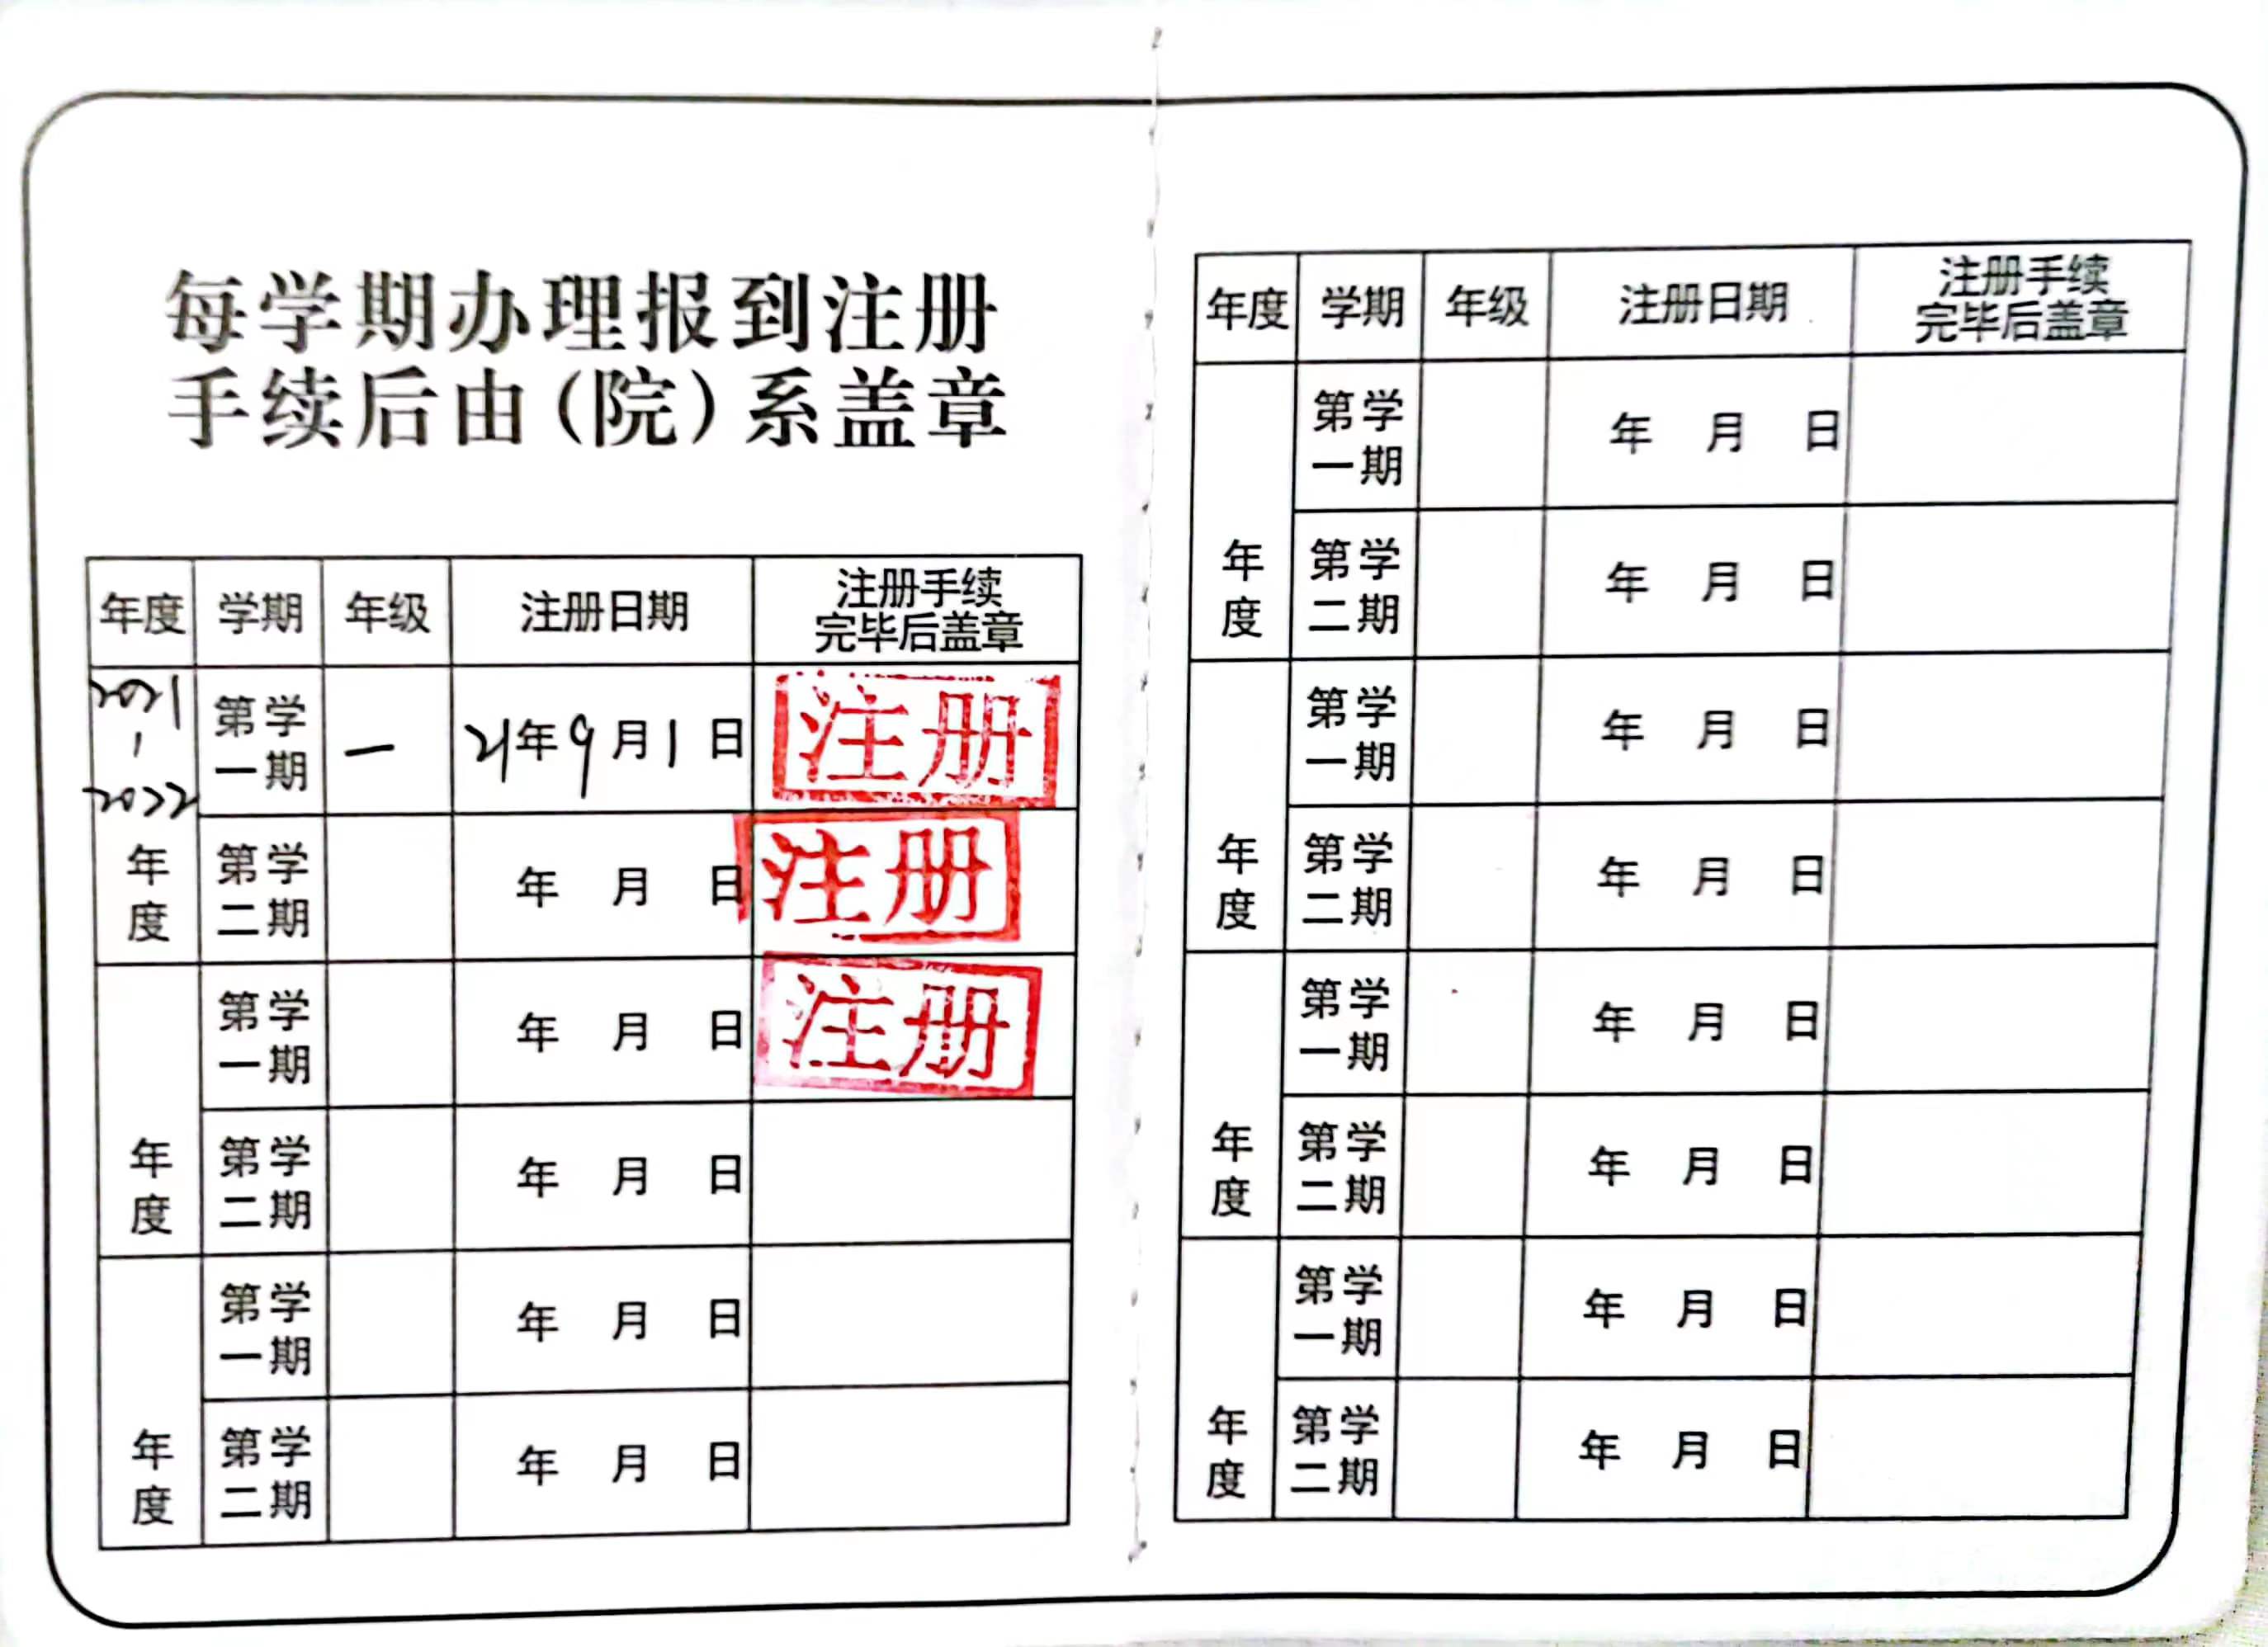 每学期办理报到注册
手续后由(院)系盖章
年度 学期 年级 注册日期 注册手续完毕后盖章
2021-2022年度 第一学期 一 21年9月1日 注册
第二学期 年 月 日 注册
年度 第一学期 年 月 日 注册
第二学期 年 月 日
年度 第一学期 年 月 日
第二学期 年 月 日
年度 学期 年级 注册日期 注册手续完毕后盖章
年度 第一学期 年 月 日
第二学期 年 月 日
年度 第一学期 年 月 日
第二学期 年 月 日
年度 第一学期 年 月 日
第二学期 年 月 日
年度 第一学期 年 月 日
第二学期 年 月 日